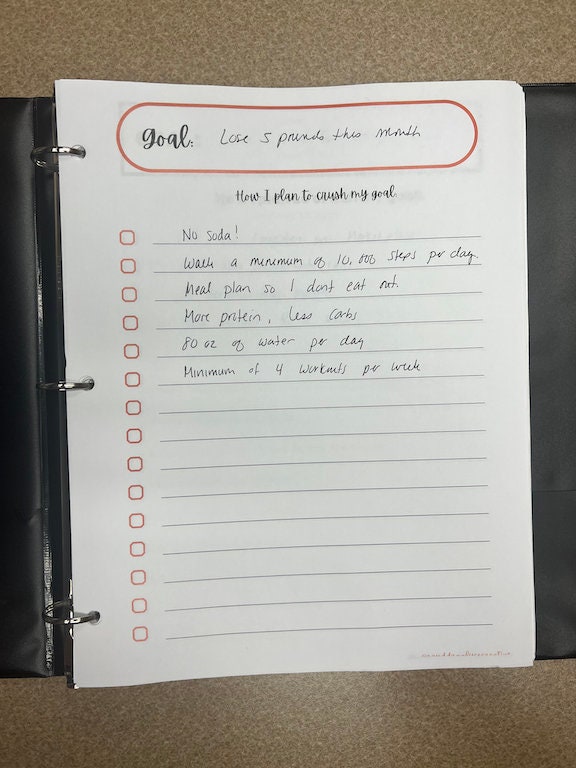 Goal: Lose 5 pounds this month
How I plan to crush my goal
No Soda!
Walk a minimum of 10,000 steps per day.
Meal plan so I dont eat out.
More protein, less carbs
80 oz of water per day
Minimum of 4 workouts per week